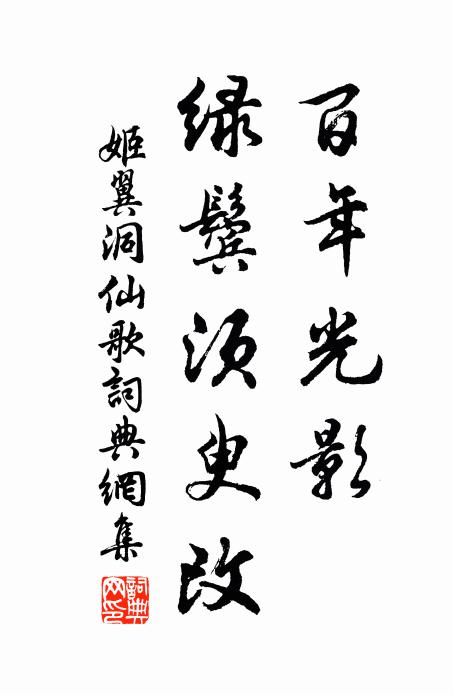 百年光影
绿鬓须臾改
姬翼洞仙歌詞典網集
詞典網印